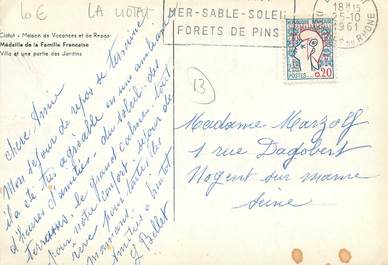 10€ LA CIOTAT
MER-SABLE-SOLEIL
FORETS DE PINS
18H15
25-10
1961
RHONE
POSTES
0,20
13
Ciotat - Maison de Vacances et de Repos
Médaille de la Famille Française
Villa et une partie des Jardins
Chère Amie
Mon séjour de repos se termine
il a été très agréable en une ambiance
d'heures d'amitiés, du soleil, des
terrasses, le grand calme, tout
pour notre confort, séjour de
rêve pour toutes les
mamans.
Amitiés à bientôt
Billet
Madame Marzolf
1 rue Dagobert
Nogent sur marne
Seine